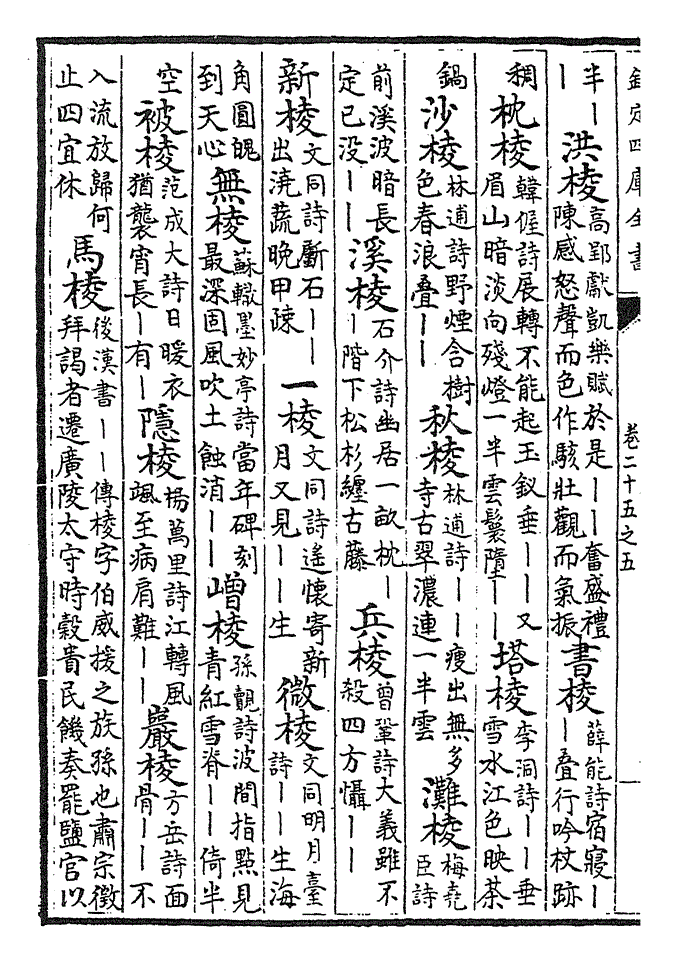 欽定四庫全書 卷二十五之五
半丨丨洪棱高郢獻凱樂賦於是丨丨奮盛禮陳感怒聲而色作駭壯觀而氣振書棱薛能詩宿寢丨丨疊行吟杖跡
稠枕棱韓偓詩展轉不能起玉釵垂丨丨又眉山暗淡向殘燈一半雲鬟墮丨丨塔棱李洞詩丨丨垂雪水江色映茶
鍋沙棱林逋詩野煙含樹色春浪疊丨丨秋棱林逋詩丨丨瘦出無多寺古翠濃連一半雲灘棱梅堯臣詩
前溪波暗長定已没丨丨溪棱石介詩幽居一畝枕丨丨階下松杉纏古藤兵棱曾鞏詩大義雖不殺四方懾丨丨
新棱文同詩斸石丨丨出澆蔬晚甲疎一棱文同詩遙懷寄新月又見丨丨生微棱文同明月臺詩丨丨生海
角圓魄到天心無棱蘇轍墨妙亭詩當年碑刻最深固風吹土蝕消丨丨嶒棱孫覿詩波間指點見青紅雪脊丨丨倚半
空被棱范成大詩日暖衣猶襲宵長丨有丨隱棱楊萬里詩江轉風颯至病肩難丨丨巖棱方岳詩面骨丨丨不
入流放歸何止四宜休馬棱後漢書丨丨傳棱字伯威援之族孫也肅宗徵拜謁者遷廣陵太守時穀貴民饑奏罷鹽官以